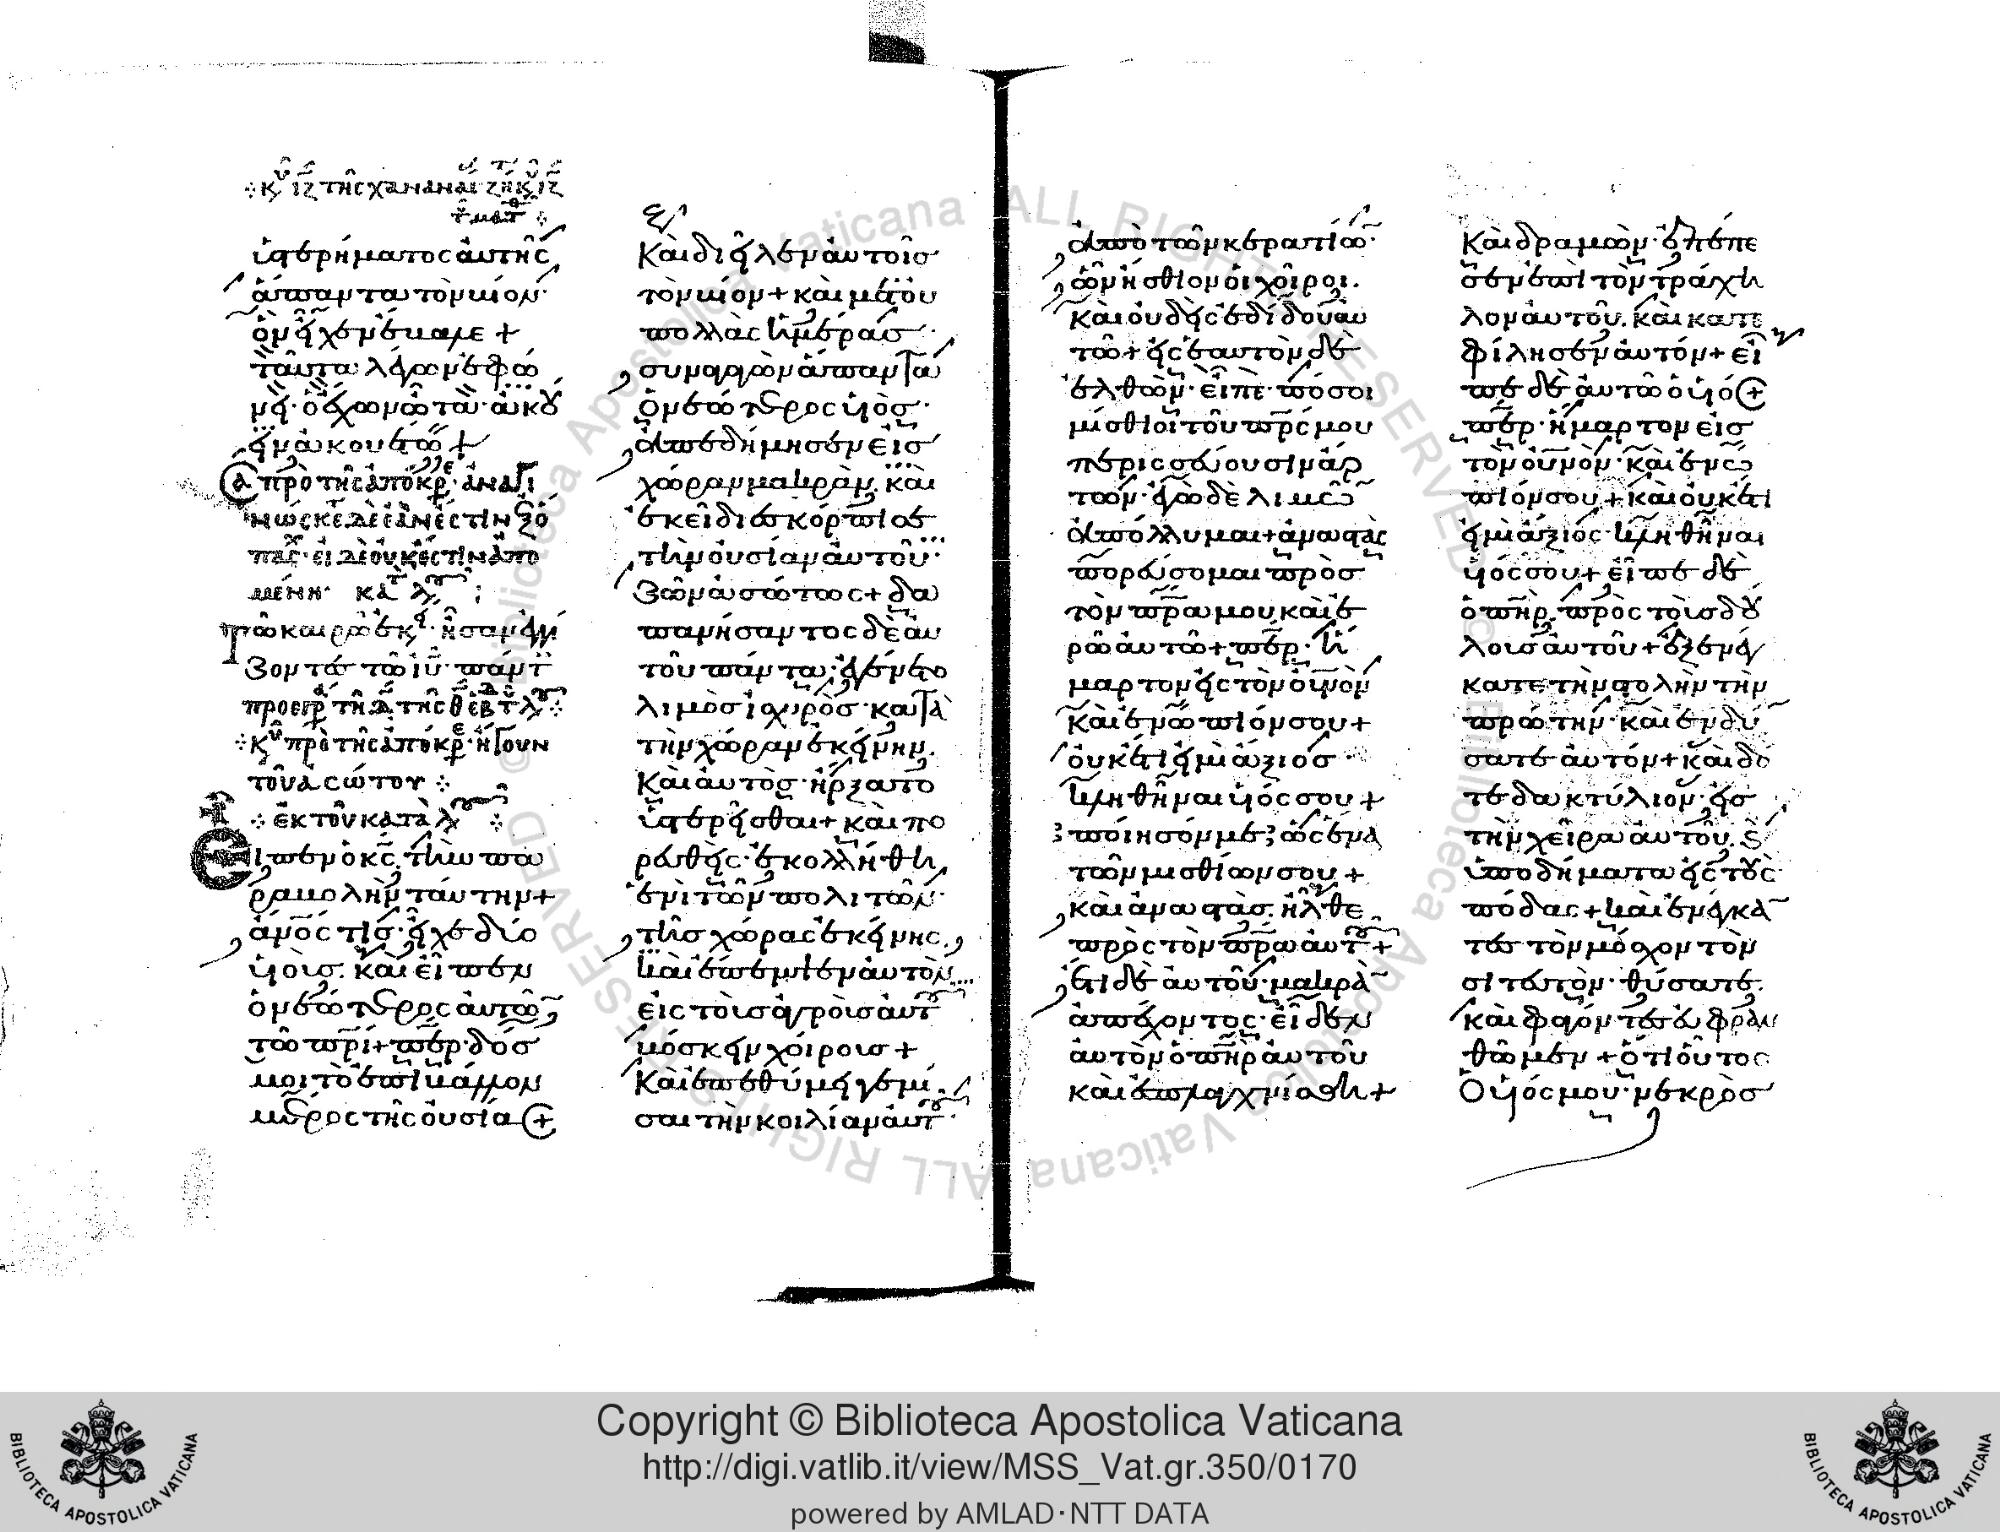 Κυ ιζ της χαναναι ζη κυ ιζ
του ματθ
ὑστερήματος αὐτῆς
ἅπαντα τὸν βίον
ὃν εἶχεν ἔβαλε +
ταῦτα λέγων ἐφώ
νει· ὁ ἔχων ὦτα ἀκού
ειν ἀκουέτω +
πρὸ τῆς ἀπόκρ· ἀναγι
νώσκε
μένη· κατ λ
Τῷ καιρῷ ἐκει· ἦσαν ἐγγί
ζοντες τῷ ιυ πάντ
Κυ πρὸ τῆς ἀπόκρ ἤγουν
τοῦ ἀσώτου
ἐκ τοῦ κατὰ λ
Εἶπεν ὁ κς τὴν πα
ραβολὴν ταύτην +
ἄνος τις· εἶχε δύο
υἱούς· καὶ εἶπεν
ὁ νεώτερος αὐτῶ
τῷ πρι + περ· δός
μοι τὸ ἐπιβάλλον
μέρος τῆς οὐσίας +
Καὶ διεῖλεν αὐτοῖς
τὸν βίον + καὶ μετ οὐ
πολλὰς ἡμέρας
συναγαγὼν ἅπαντα
ὁ νεώτερος υἱός·
ἀπεδήμησεν εἰς
χώραν μακρὰν· καὶ
ἐκεῖ διεσκόρπισε
τὴν οὐσίαν αὐτοῦ
ζῶν ἀσώτως + δα
πανήσαντος δὲ αὐ
τοῦ πάντα· ἐγένετο
λιμὸς ἰσχυρὸς κατὰ
τὴν χώραν ἐκείνην.
Καὶ αὐτὸς· ἤρξατο
ὑστερεῖσθαι + καὶ πο
ρευθεὶς· ἐκολλήθη
ἑνὶ τῶν πολιτῶν
τῆς χώρας ἐκείνης.
καὶ ἔπεμψεν αὐτὸν
εἰς τοὺς ἀγροὺς αὐτ
βόσκειν χοίρους +
Καὶ ἐπεθύμει γεμί
σαι τὴν κοιλίαν αὐτ
ἀπὸ τῶν κερατίω
ὧν ἤσθιον οἱ χοῖροι.
καὶ οὐδεὶς ἐδίδου αὐ
τῷ + εἰς ἑαυτὸν δὲ
ἐλθὼν· εἶπε· πόσοι
μίσθιοι τοῦ πρς μου
περισσεύουσιν ἄρ
των· ἐγὼ δὲ λιμῶ
ἀπόλλυμαι + ἀναστὰς
πορεύσομαι πρὸς
τὸν πρα μου καὶ ἐ
ρῶ αὐτῷ + περ· ἥ
μαρτον εἰς τὸν οὐνὸν
καὶ ἐνώπιόν σου +
οὐκέτι εἰμὶ ἄξιος
κληθῆναι υἱός σου +
ποίησόν με ὡς ἕνα
τῶν μισθίων σου +
καὶ ἀναστὰς· ἦλθε
πρὸς τὸν πρα αὐτ +
ἔτι δὲ αὐτοῦ μακρὰ
ἀπέχοντος· εἶδεν
αὐτὸν ὁ πηρ αὐτοῦ
καὶ ἐσπλαγχνίσθη +
Καὶ δραμὼν· ἐπέπε
σεν ἐπὶ τὸν τράχη
λον αὐτοῦ. καὶ κατε
φίλησεν αὐτόν + εἶ
πε δὲ αὐτῷ ὁ υἱός +
περ· ἥμαρτον εἰς
τὸν οὐνὸν· καὶ ἐνώ
πιόν σου + καὶ οὐκέτι
εἰμὶ ἄξιος· κληθῆναι
υἱός σου + εἶπε δὲ
ὁ πηρ· πρὸς τοὺς δού
λους αὐτοῦ + ἐξενέγ
κατε τὴν στολὴν τὴν
πρώτην· καὶ ἐνδύ
σατε αὐτόν + καὶ δό
τε δακτύλιον· εἰς
τὴν χεῖρα αὐτοῦ. καὶ
ὑποδήματα εἰς τοὺς
πόδας + καὶ ἐνέγκα
τες τὸν μόσχον τὸν
σιτευτὸν· θύσατε.
καὶ φαγόντες εὐφραν
θῶμεν + ὅτι οὗτος
ὁ υἱός μου· νεκρὸς
Copyright © Biblioteca Apostolica Vaticana
http://digi.vatlib.it/view/MSS_Vat.gr.350/0170
powered by AMLAD·NTT DATA
BIBLIOTECA APOSTOLICA VATICANA
BIBLIOTECA APOSTOLICA VATICANA